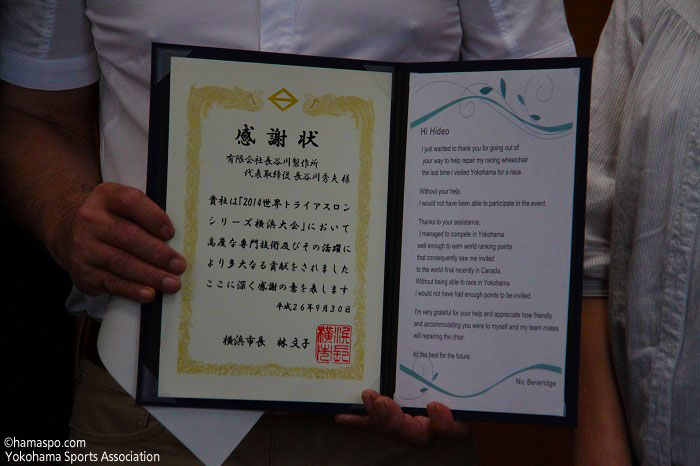 感謝状
有限会社長谷川製作所
代表取締役 長谷川秀夫 様
貴社は「2014世界トライアスロン
シリーズ横浜大会」において
高度な専門技術及びその活躍に
より多大なる貢献をされました
ここに深く感謝の意を表します
平成26年9月30日
横浜市長 林 文子
Hi Hideo
I just wanted to thank you for going out of
your way to help repair my racing wheelchair
the last time I visited Yokohama for a race.
Without your help,
I would not have been able to participate in the event.
Thanks to your assistance,
I managed to compete in Yokohama
well enough to earn world ranking points
that consequently saw me invited
to the world final recently in Canada.
Without being able to race in Yokohama
I would not have had enough points to be invited.
I'm very grateful for your help and appreciate how friendly
and accommodating you were to myself and my team mates
will repairing the chair.
All the best for the future.
Nic Beveridge
©hamaspo.com
Yokohama Sports Association